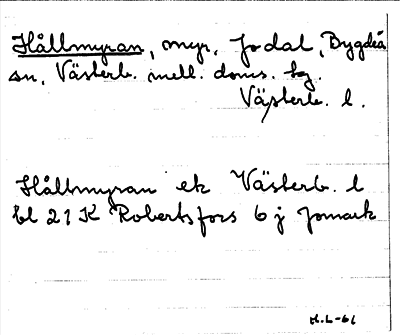 Hållmyran, myr, Jodal, Bygdeå
sn, Västerb. mell. doms. hg.
Västerb. l.
Hållmyran ek Västerb. l
bl 21 K Robertsfors 6 j Jomark
H.L-61